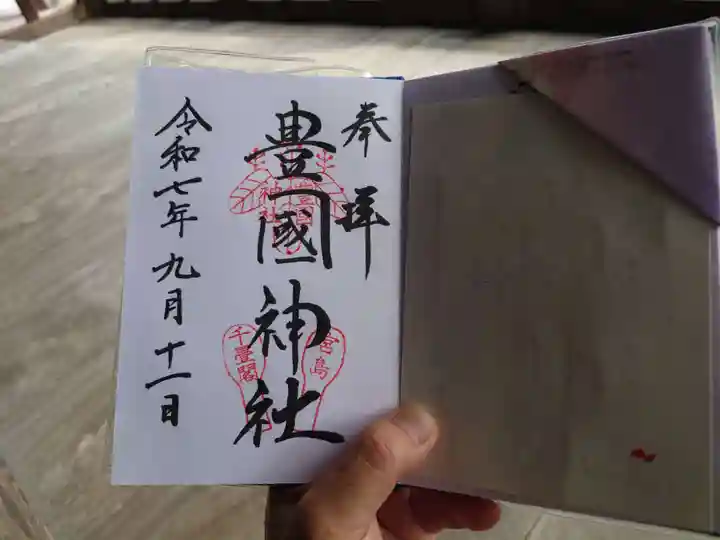 奉拝
豊國神社
豊國神社
宮島
千畳閣
令和七年九月十一日